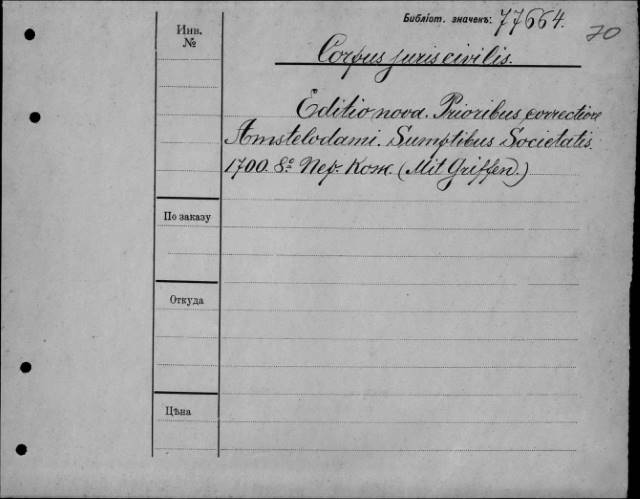 Библіот. значекъ: 77664.
70
Инв.
№
Corpus juris civilis.
Editio nova. Prioribus correctior
Amstelodami. Sumptibus Societatis.
1700. 8º. Пер. Кож. (Mit Griffen.)
По заказу
Откуда
Цѣна